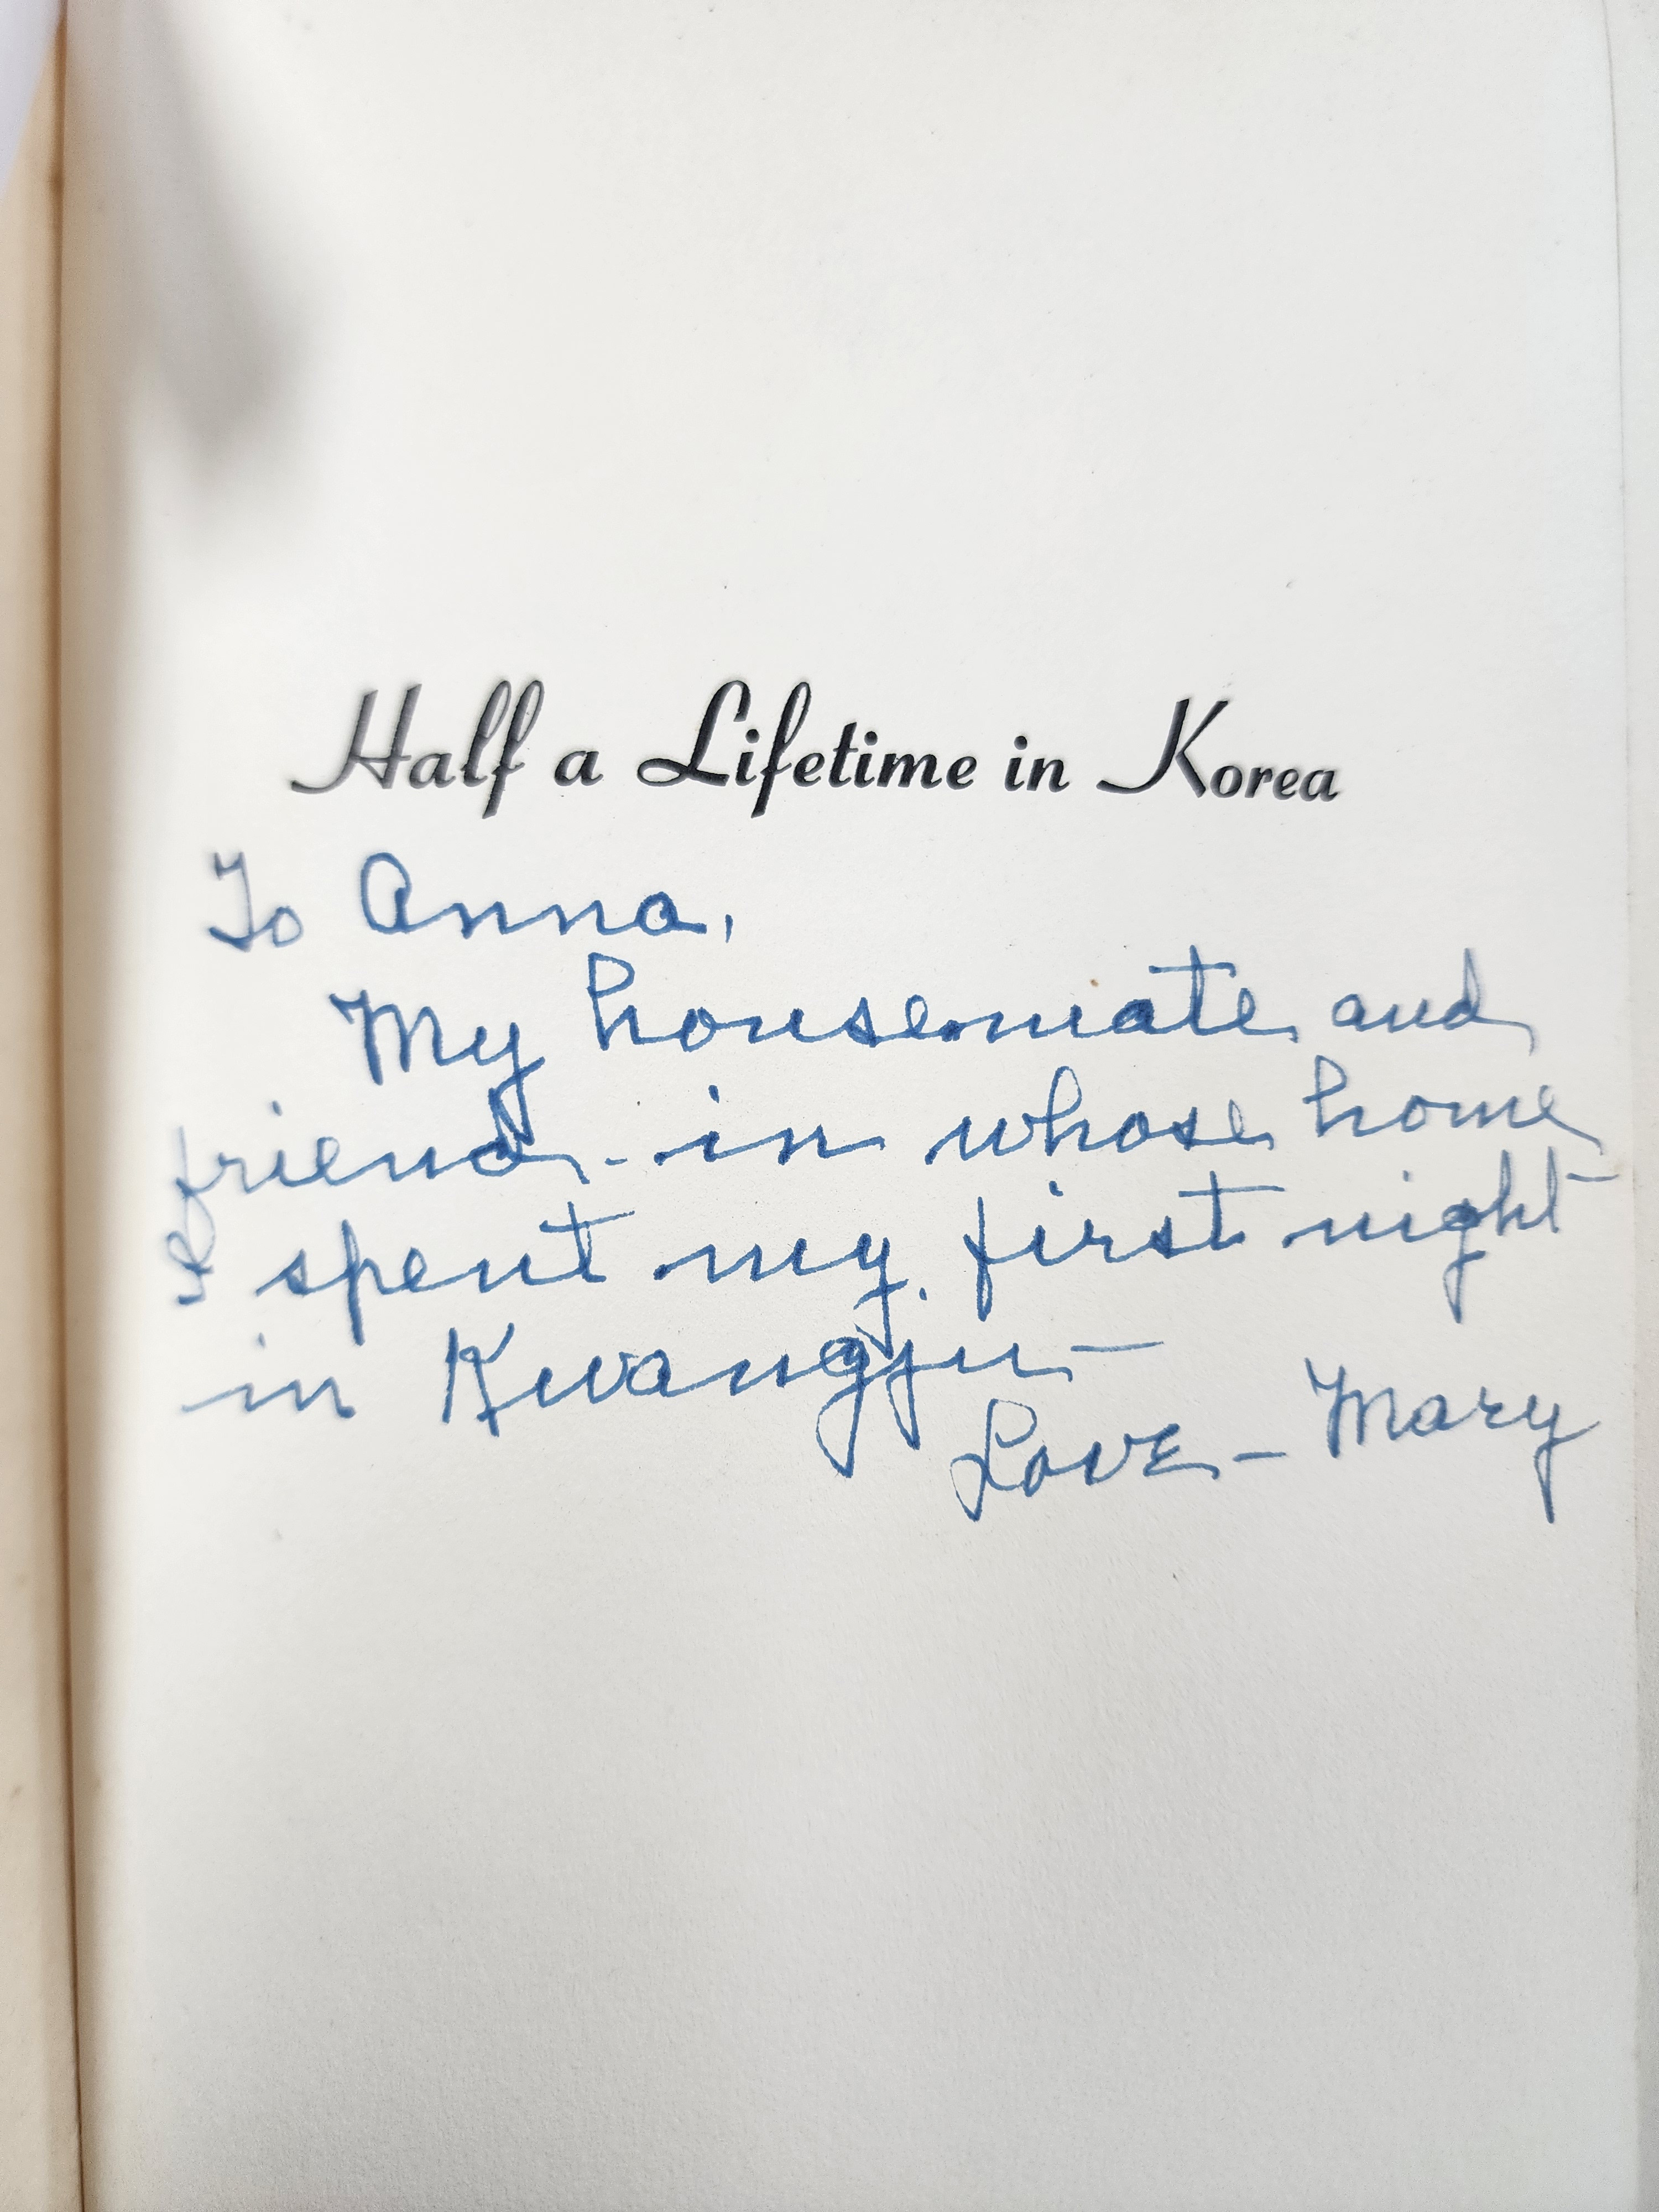 Half a Lifetime in Korea
To Anna,
My housemate and
friend - in whose home
I spent my first night
in Kwangju -
Love - Mary